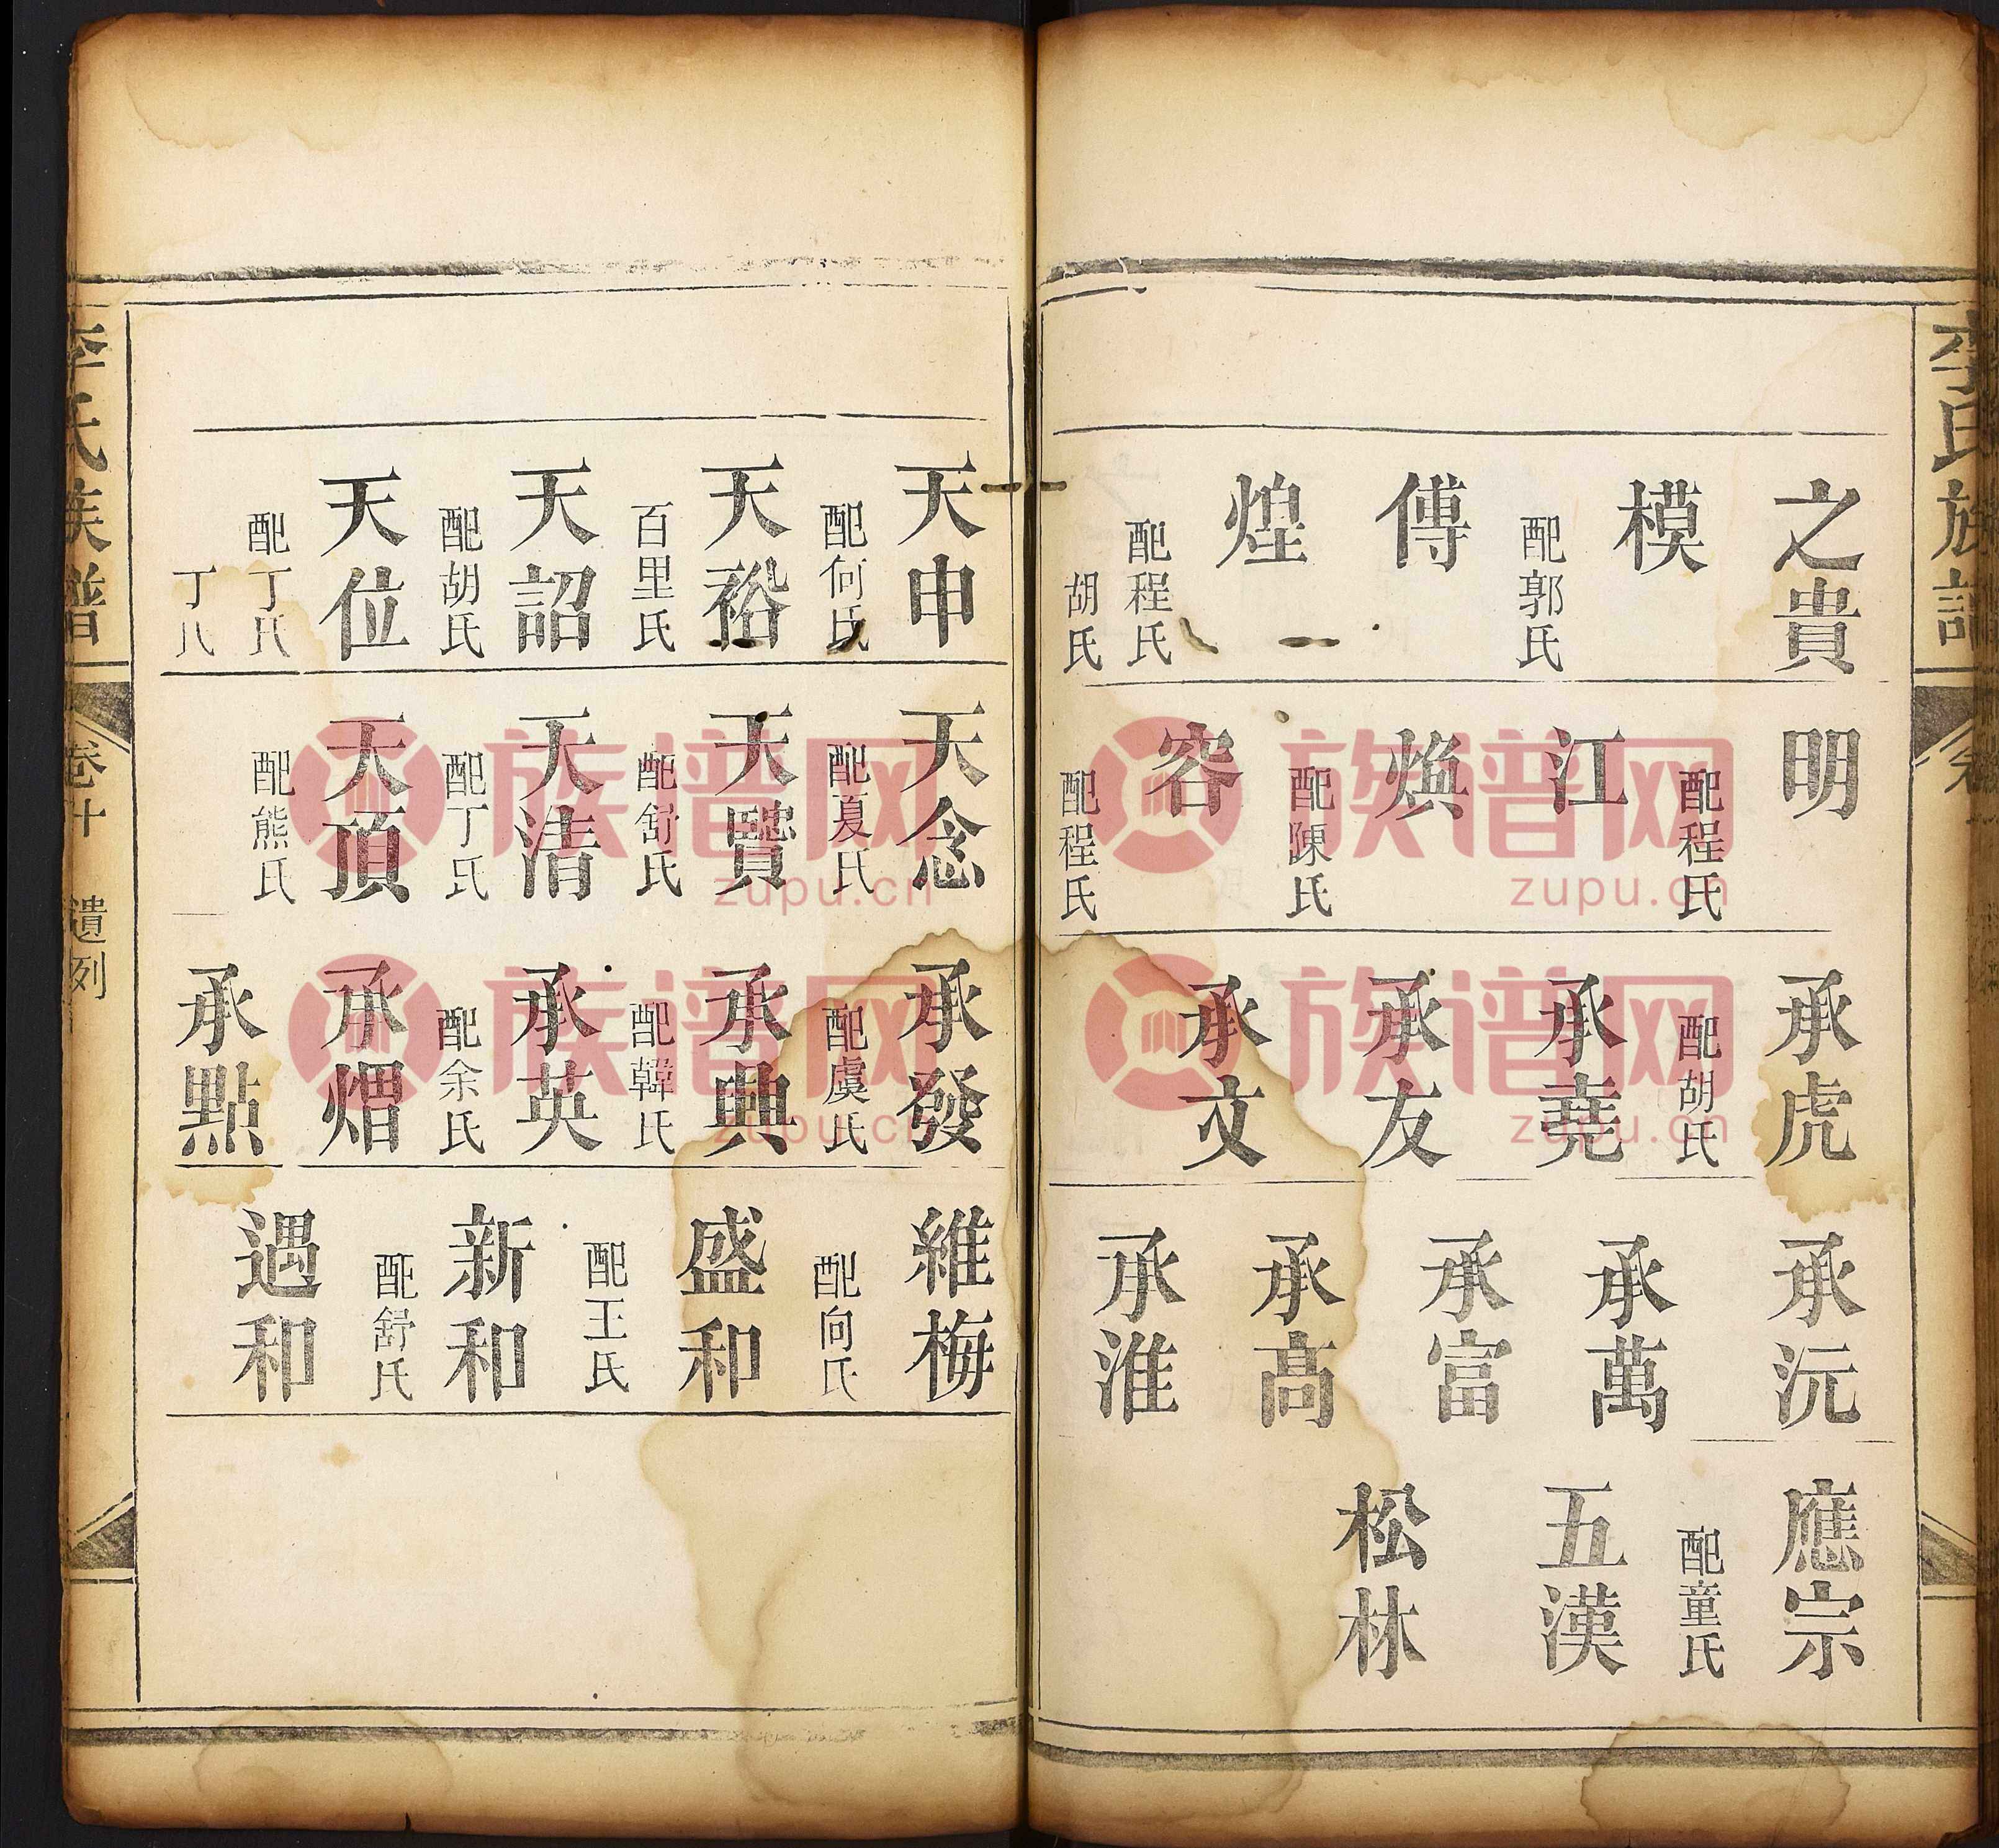 李氏族譜
之貴
模
配郭氏
傅
煌
配程氏
胡氏
明
配程氏
江
煥
配陳氏
容
配程氏
承虎
配胡氏
承堯
承友
承文
承沅
承萬
承富
承高
承淮
應宗
配童氏
五漢
松林
天申
配何氏
天裕
百里氏
天詔
配胡氏
天位
配丁氏
天念
配夏氏
天覽
配舒氏
天清
配丁氏
天頂
配熊氏
承發
配虞氏
承典
配韓氏
承英
配余氏
承煟
承點
維梅
配向氏
盛和
配王氏
新和
配舒氏
遇和
李氏族譜
卷十
遺列
族谱网
zupu.cn
族谱网
zupu.cn
族谱网
zupu.cn
族谱网
zupu.cn